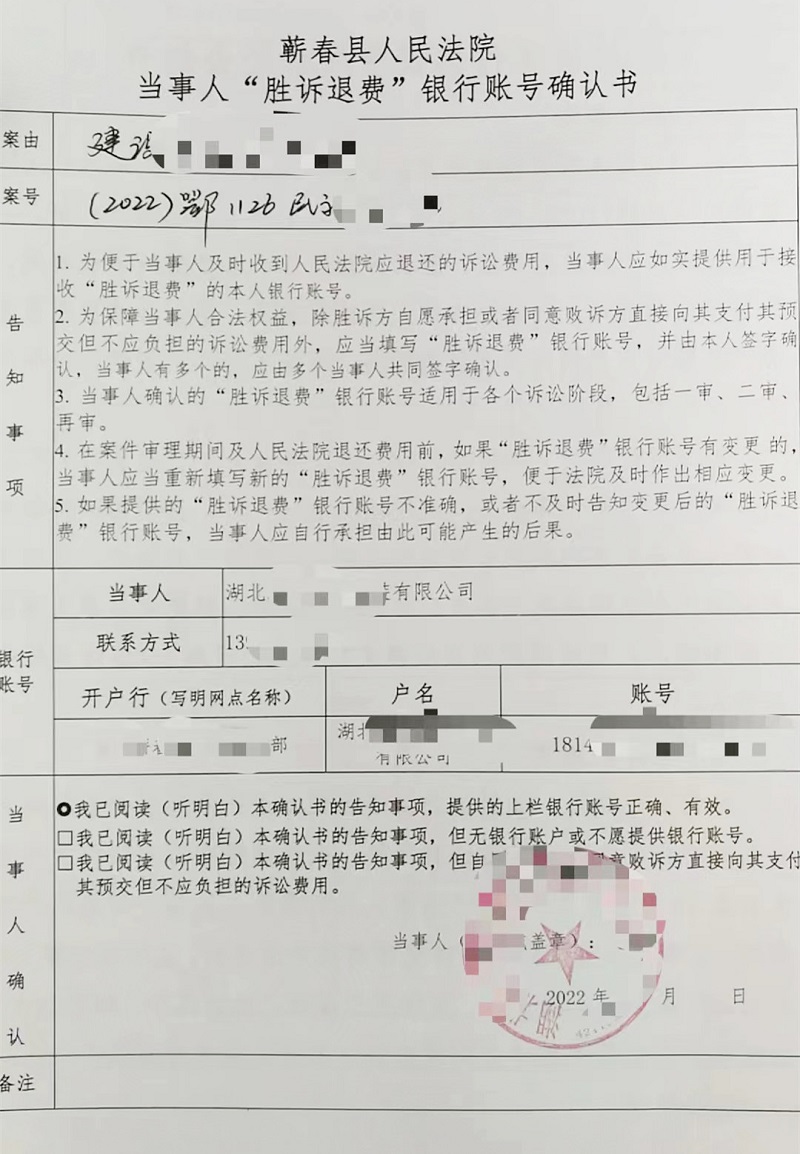 蕲春县人民法院
当事人“胜诉退费”银行账号确认书
案由 建设
案号 (2022)鄂1126民
告知事项
1. 为便于当事人及时收到人民法院应退还的诉讼费用，当事人应如实提供用于接
收“胜诉退费”的本人银行账号。
2. 为保障当事人合法权益，除胜诉方自愿承担或者同意败诉方直接向其支付其预
交但不应负担的诉讼费用外，应当填写“胜诉退费”银行账号，并由本人签字确
认，当事人有多个的，应由多个当事人共同签字确认。
3. 当事人确认的“胜诉退费”银行账号适用于各个诉讼阶段，包括一审、二审、
再审。
4. 在案件审理期间及人民法院退还费用前，如果“胜诉退费”银行账号有变更的，
当事人应当重新填写新的“胜诉退费”银行账号，便于法院及时作出相应变更。
5. 如果提供的“胜诉退费”银行账号不准确，或者不及时告知变更后的“胜诉退
费”银行账号，当事人应自行承担由此可能产生的后果。
银行
账号
当事人 湖北 有限公司
联系方式 13
开户行（写明网点名称） 户名 账号
部 湖北 1814
有限公司
当事人确认
我已阅读（听明白）本确认书的告知事项，提供的上栏银行账号正确、有效。
□我已阅读（听明白）本确认书的告知事项，但无银行账户或不愿提供银行账号。
□我已阅读（听明白）本确认书的告知事项，但自 意败诉方直接向其支付
其预交但不应负担的诉讼费用。
当事人（ 盖章）：
2022 年 月 日
备注